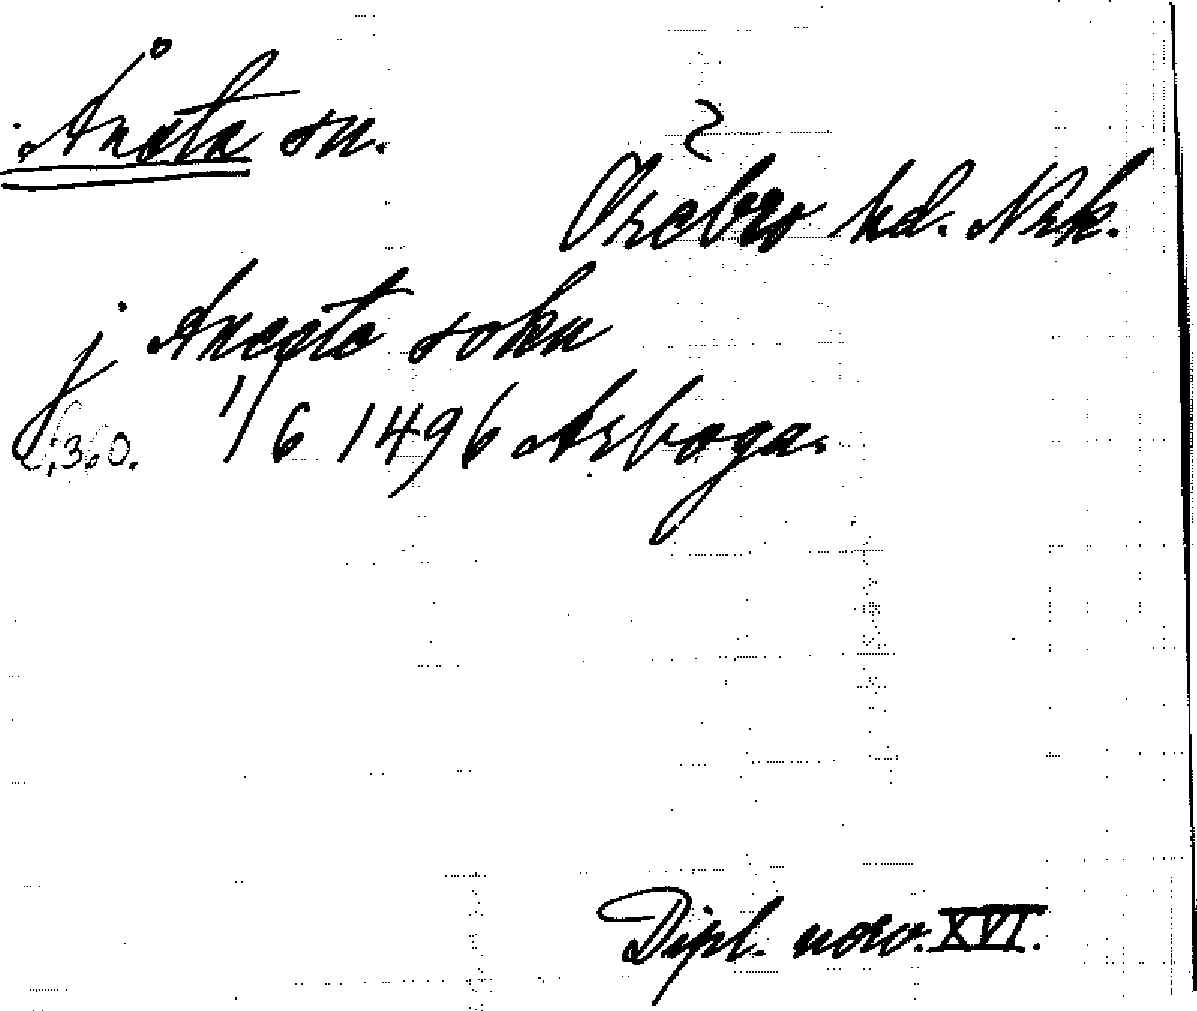 Ånsta sn.
Örebro hd. Nrk.
j Anæsta sokn
f. 360. 1/6 1496 Arboga.
Dipl. norv. XVI.